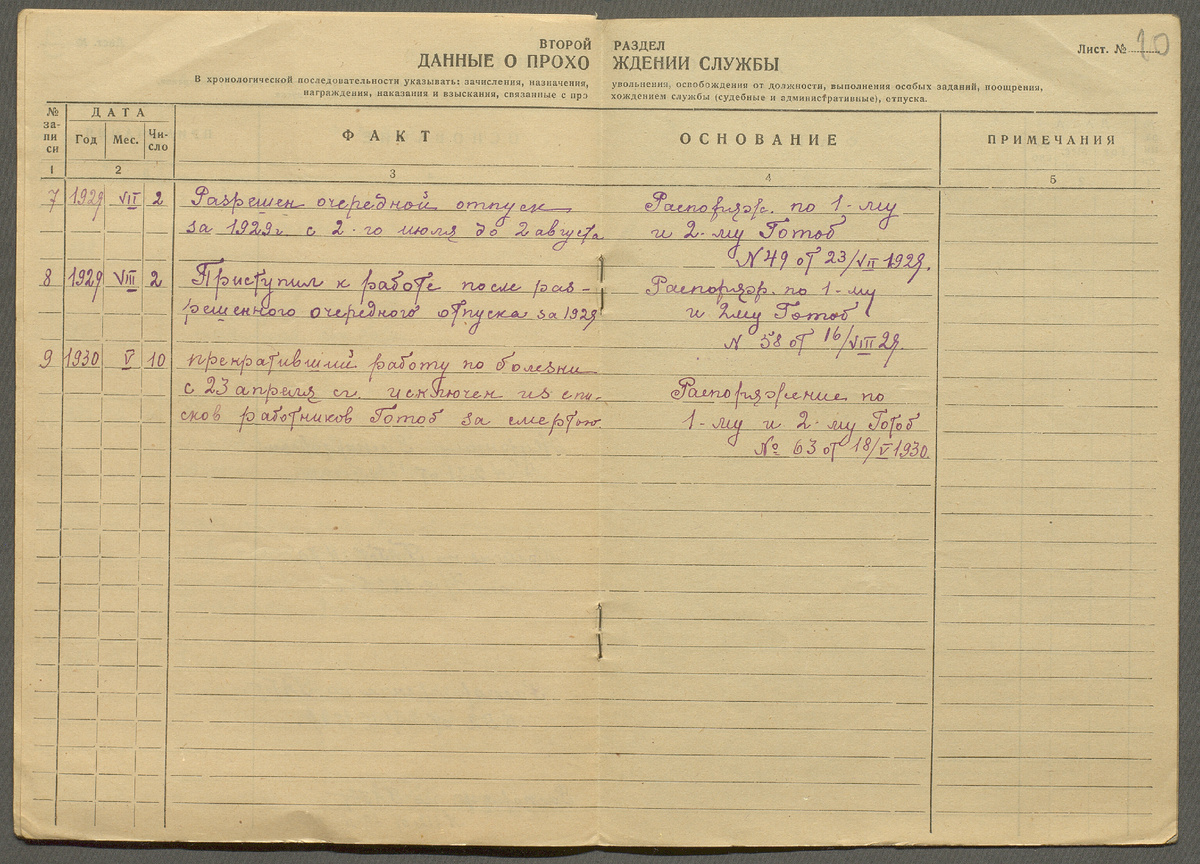 ВТОРОЙ РАЗДЕЛ
Лист. № 10
ДАННЫЕ О ПРОХОЖДЕНИИ СЛУЖБЫ
В хронологической последовательности указывать: зачисления, назначения, увольнения, освобождения от должности, выполнения особых заданий, поощрения,
награждения, наказания и взыскания, связанные с прохождением службы (судебные и административные), отпуска.
№ записи
ДАТА
Год Мес. Число
ФАКТ
ОСНОВАНИЕ
ПРИМЕЧАНИЯ
1 2 3 4 5
7 1929 VII 2 Разрешен очередной отпуск
за 1929г. с 2-го июля до 2 августа
Распоряж. по 1-му
и 2-му Готоб
N 49 от 23/VII 1929.
8 1929 VIII 2 Приступил к работе после раз-
решенного очередного отпуска за 1929
Распоряж. по 1-му
и 2му Готоб
N 58 от 16/VIII 29.
9 1930 V 10 прекративший работу по болезни
с 23 апреля сг. исключен из спи-
сков работников Готоб за смертью.
Распоряжение по
1-му и 2-му Готоб
№ 63 от 18/V 1930.